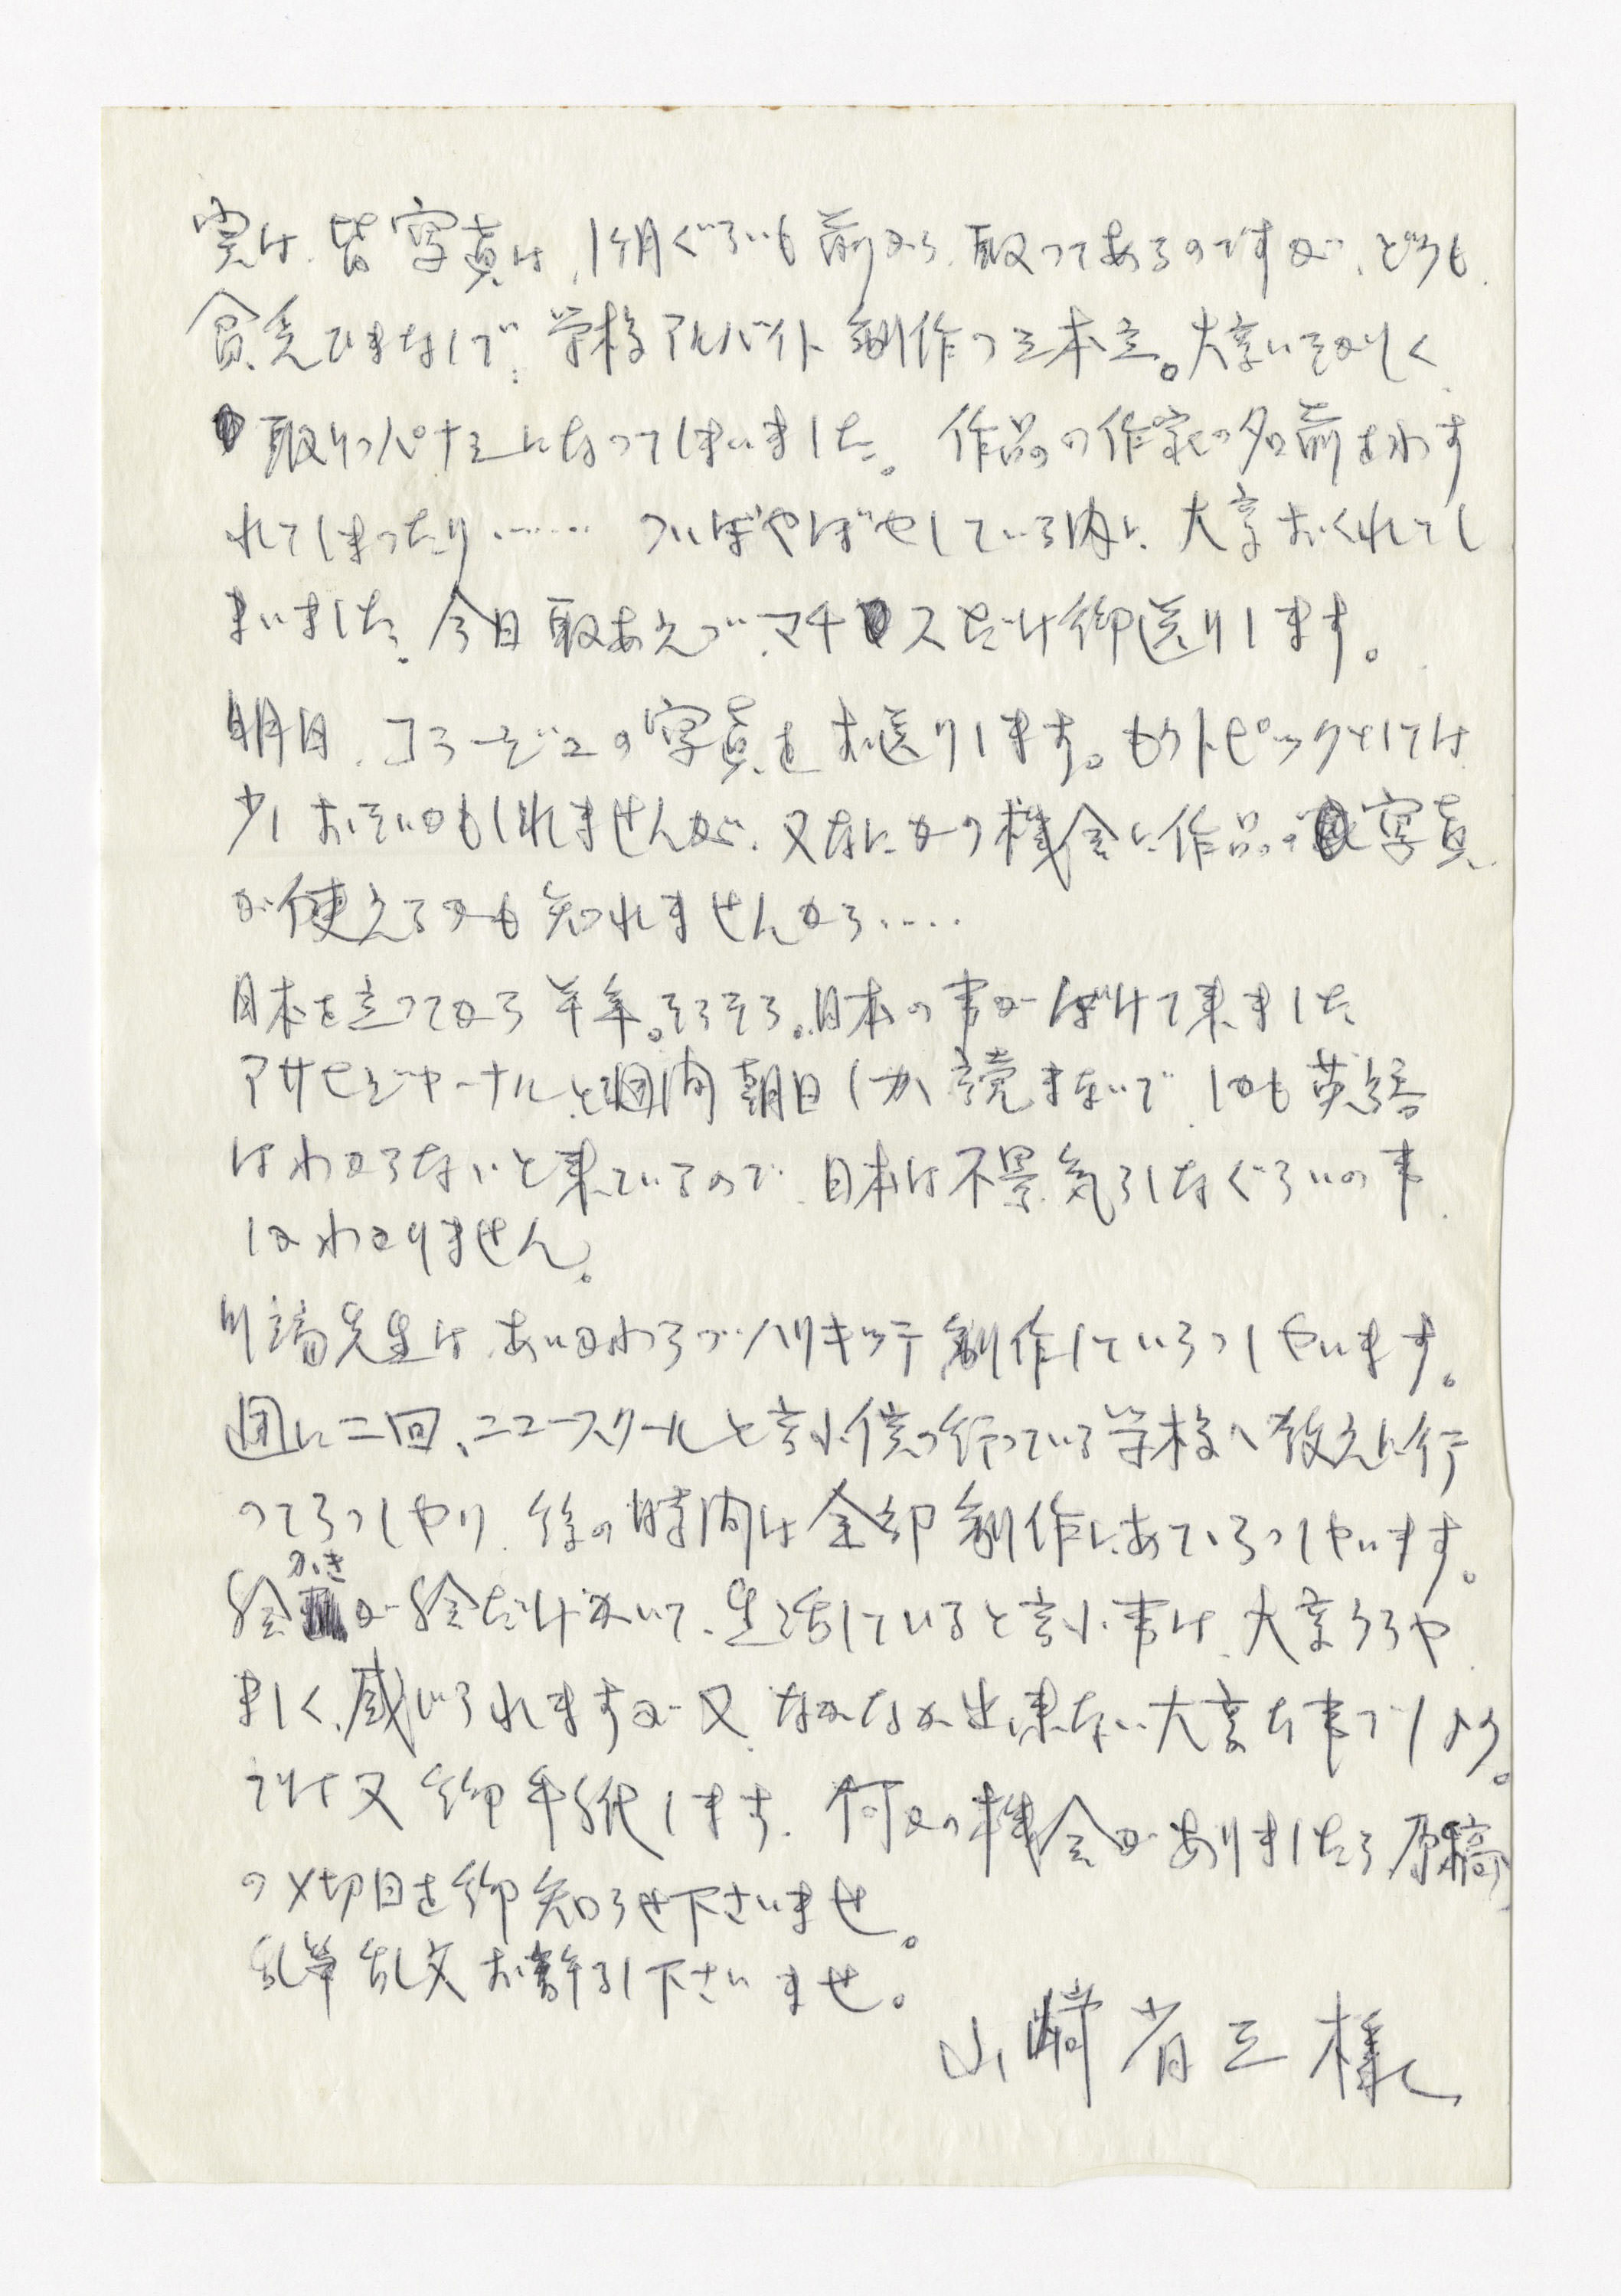 実は、皆写真は、1ヶ月ぐらいも前から、取ってあるのですが、どうも
貧乏ひまなしで、学校アルバイト制作の三本立。大変いそがしく
取りっパナシになってしまいました。作品の作家の名前をわす
れてしまったり…… ついぼやぼやしている内に、大変おくれてし
まいました。今日取あえづ、マチスだけ御送りします。
明日、コラージュの写真をお送りします。もうトピックとしては
少しおそいかもしれませんが、又なにかの機会に作品の写真
が使えるかも知れませんから‥‥
日本を立ってから半年。そろそろ。日本の事がぼけて来ました
アサヒジャーナルと週間朝日しか読まないで、しかも英語
はわからないと来ているので、日本は不景気らしなぐらいの事
しかわかりません。
川端先生は、あいかわらづハリキッテ制作していらっしやいます。
週に二回、ニュースクールと言ふ僕の行っている学校へ教えに行
ってらっしやり、後の時間は全部制作にあていらっしやいます。
絵かきが絵だけかいて、生活していると言ふ事は、大変うらや
ましく、感じられますが又、なかなか出来ない大変な事でしょう。
では又御手紙します。何かの機会がありましたら原稿
の〆切日を御知らせ下さいませ。
乱筆乱文お許るし下さいませ。
山崎省三様